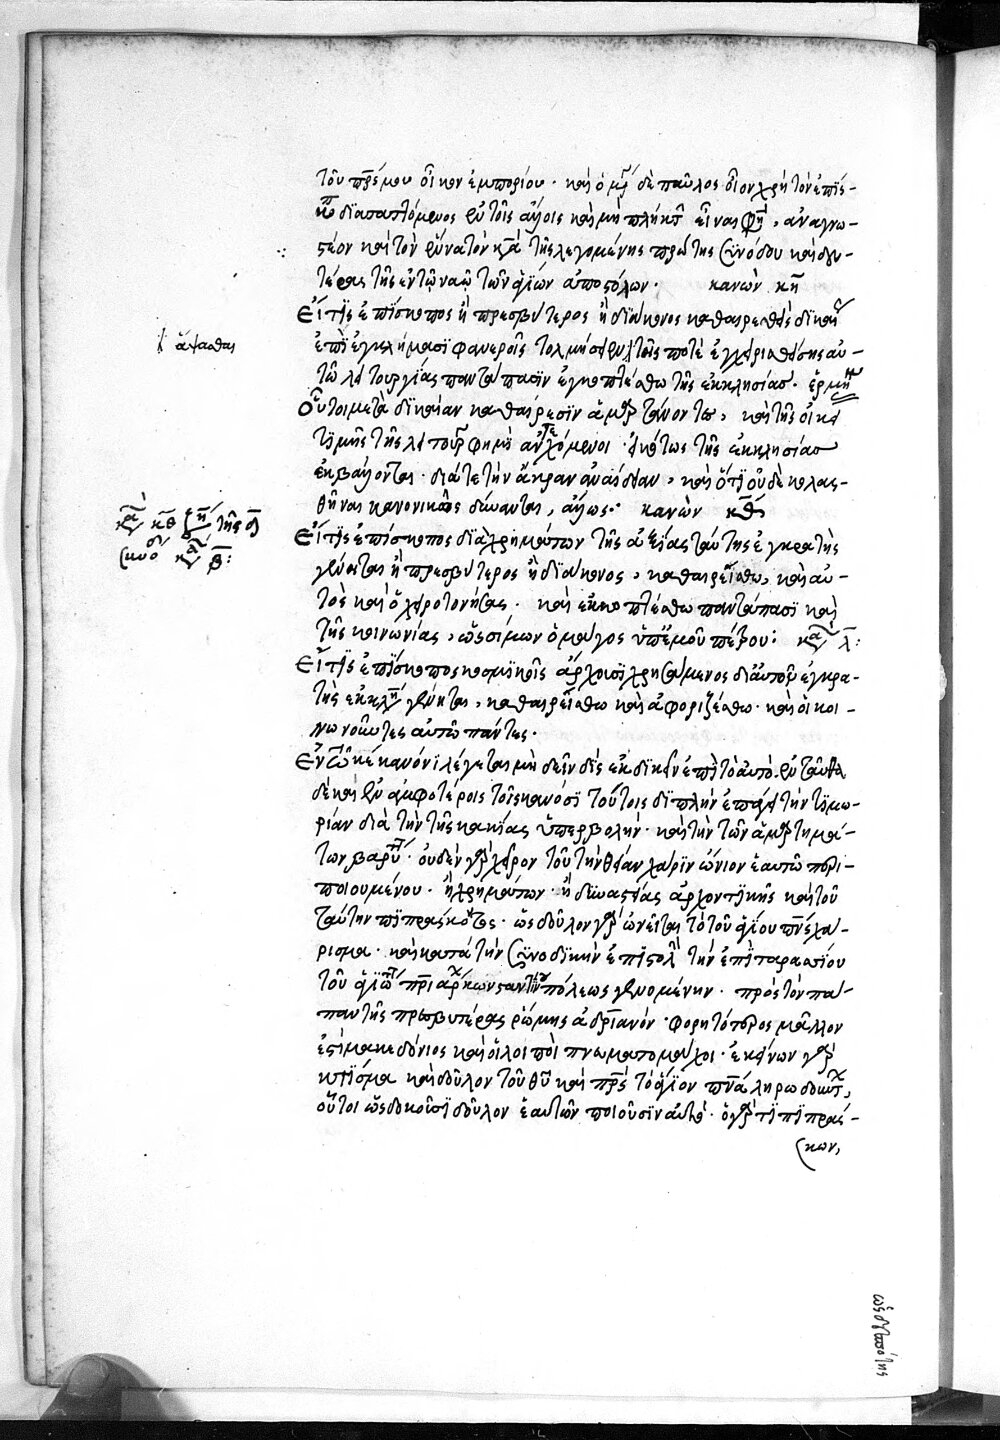 τοῦ πρς μου οἶκον ἐμπορίου · καὶ ὁ μγ δὲ παῦλος οἷον χρὴ τὸν ἐπίσ-
κο διαπαττόμενος ἐν τοῖς ἄλλοις καὶ μὴ πλήκτ εἶναι φη, ἀναγνω-
στέον καὶ τὸν ἔνατον κα τῆς λεγομένης πρώτης συνόδου καὶ δευ-
τέρας τῆς ἐν τῷ ναῷ τῶν ἁγίων ἀποστόλων · κανὼν κη
Εἴ τις ἐπίσκοπος ἢ πρεσβύτερος ἢ διάκονος καθαιρεθεὶς δικαί
ἐπὶ ἐγκλήμασι φανεροῖς τολμήσει τῆς ποτὲ ἐγχειρισθείσης αὐ-
τῶ λειτουργίας παντάπασιν ἐγκοπτέσθω τῆς ἐκκλησίας · ἑρμη
Οὗτοι μετὰ δικαίαν καθαίρεσιν ἁμαρτάνοντ, καὶ τῆς οἰκεί
τιμῆς τῆς λειτουργ μὴ ἀντεχόμενοι · εἰκότως τῆς ἐκκλησίας
ἐκβάλλονται · διά τε τὴν ἄκραν ἀναίδειαν, καὶ ὅτι οὐδὲ κολασ-
θῆναι κανονικῶς δύνανται, ἄλλως · κανὼν κθ
Εἴ τις ἐπίσκοπος διὰ χρημάτων τῆς ἀξίας ταύτης ἐγκρατὴς
γένηται ἢ πρεσβύτερος ἢ διάκονος, καθαιρείσθω, καὶ αὐ-
τὸς καὶ ὁ χειροτονήσας · καὶ ἐκκοπτέσθω παντάπασι καὶ
τῆς κοινωνίας, ὡς σίμων ὁ μάγος ὑπ' ἐμοῦ πέτρου : κα λ :
Εἴ τις ἐπίσκοπος κοσμικοῖς ἄρχουσι χρησάμενος δι' αὐτῶν ἐγκρα-
τὴς ἐκκλη γένηται, καθαιρείσθω καὶ ἀφοριζέσθω · καὶ οἱ κοι-
νωνοῦντες αὐτῶ πάντες ·
Ἐν τῶ κε κανόνι λέγεται μὴ δεῖν δὶς ἐκδικεῖν ἐπὶ τὸ αὐτό · ἐνταῦθα
δὲ καὶ ἐν ἀμφοτέροις τοῖς κανόσι τούτοις διπλὴν ἐπάγει τὴν τιμω-
ρίαν διὰ τὴν τῆς κακίας ὑπερβολήν · καὶ τὴν τῶν ἁμαρτημά-
των βαρύτ · οὐδὲν γὰρ χεῖρον τοῦ τὴν θείαν χάριν ὤνιον ἑαυτῶ περι-
ποιουμένου · ἢ χρημάτων · ἢ δυναστείας ἀρχοντικῆς καὶ τοῦ
ταύτην πιπράσκοντος · ὡς δοῦλον γὰρ ὠνεῖται τὸ τοῦ ἁγίου πνς χά-
ρισμα · καὶ κατὰ τὴν συνοδικὴν ἐπιστολ τὴν ἐπὶ ταρασίου
τοῦ ἁγιωτ πριάρχ κωνσταντίνουπόλεως γενομένην · πρὸς τὸν πά-
παν τῆς πρεσβυτέρας ῥώμης ἀδριανόν · φορητότερος μᾶλλον
ἔσται μακεδόνιος καὶ οἱ λοιποὶ πνευματομάχοι · ἐκείνων γὰρ
κτίσμα καὶ δοῦλον τοῦ θυ καὶ πρς τὸ ἅγιον πνα ληρωδούντ,
οὗτοι ὡς δοκοῦσι δοῦλον ἑαυτῶν ποιοῦσιν αὐτό · ὁ γάρ τι πιπράσ-
κων,
ἅψασθαι
κα κθ ϛ κη τῆς δ
συνό κα β :